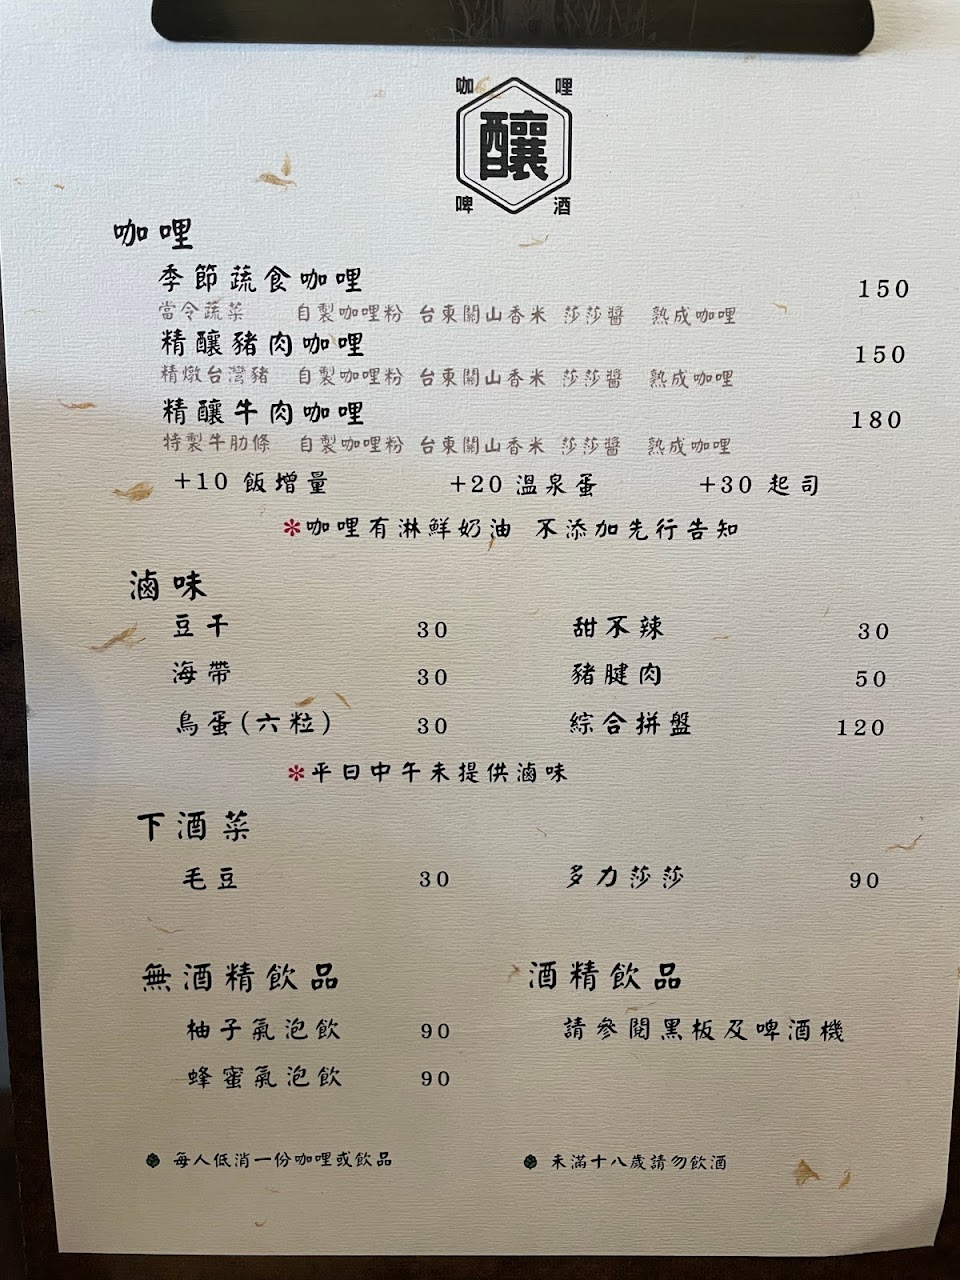 咖 哩
釀
啤 酒
咖哩
季節蔬食咖哩 150
當令蔬菜 自製咖哩粉 台東關山香米 莎莎醬 熟成咖哩
精釀豬肉咖哩 150
精燉台灣豬 自製咖哩粉 台東關山香米 莎莎醬 熟成咖哩
精釀牛肉咖哩 180
特製牛肋條 自製咖哩粉 台東關山香米 莎莎醬 熟成咖哩
+10 飯增量 +20 溫泉蛋 +30 起司
*咖哩有淋鮮奶油 不添加先行告知
滷味
豆干 30 甜不辣 30
海帶 30 豬腱肉 50
鳥蛋(六粒) 30 綜合拼盤 120
*平日中午未提供滷味
下酒菜
毛豆 30 多力莎莎 90
無酒精飲品 酒精飲品
柚子氣泡飲 90 請參閱黑板及啤酒機
蜂蜜氣泡飲 90
每人低消一份咖哩或飲品 未滿十八歲請勿飲酒